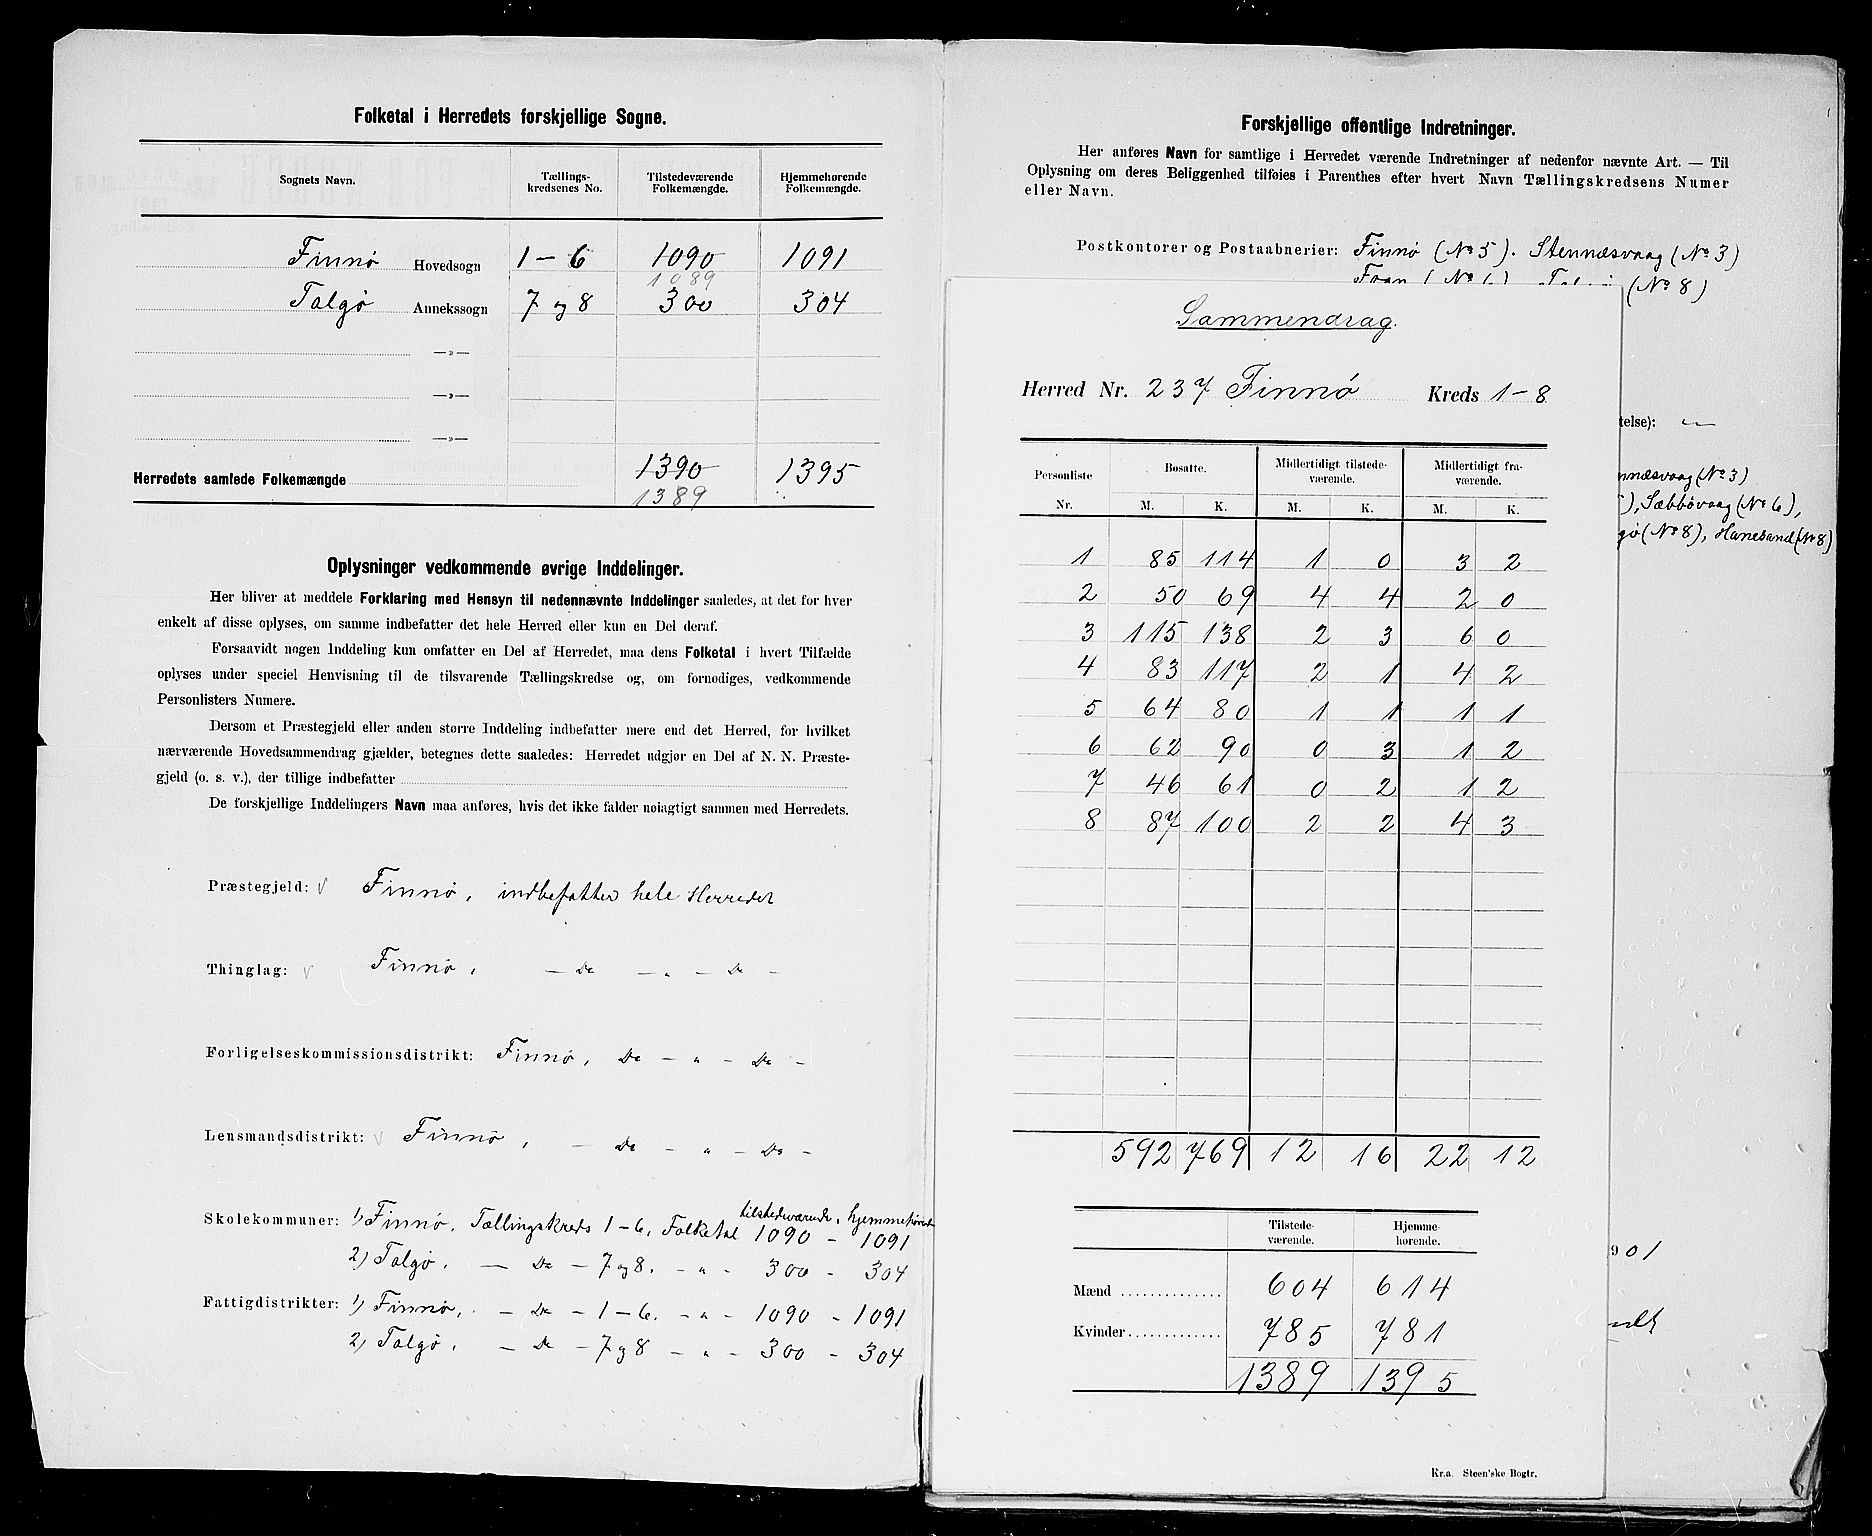 Folketal i Herredets forskjellige Sogne.
Sognets Navn. Tællings-kredsenes No. Tilstedeværende Folkemængde. Hjemmehørende Folkemængde.
Finnø Hovedsogn 1-6 1090 1091
1089
Talgø Annekssogn 7 og 8 300 304
—»—
—»—
—»—
Herredets samlede Folkemængde 1390 1395
1389
Oplysninger vedkommende øvrige Inddelinger.
Her bliver at meddele Forklaring med Hensyn til nedennævnte Inddelinger saaledes, at det for hver
enkelt af disse oplyses, om samme indbefatter det hele Herred eller kun en Del deraf.
Forsaavidt nogen Inddeling kun omfatter en Del af Herredet, maa dens Folketal i hvert Tilfælde
oplyses under speciel Henvisning til de tilsvarende Tællingskredse og, om fornødiges, vedkommende
Personlisters Numere.
Dersom et Præstegjeld eller anden større Inddeling indbefatter mere end det Herred, for hvilket
nærværende Hovedsammendrag gjælder, betegnes dette saaledes: Herredet udgjør en Del af N. N. Præste-
gjeld (o. s. v.), der tillige indbefatter
De forskjellige Inddelingers Navn maa anføres, hvis det ikke falder nøiagtigt sammen med Herredets.
Præstegjeld: √ Finnø, indbefatter hele Herredet
Thinglag: √ Finnø, — Do — „ — Do —
Forligelseskommissionsdistrikt: Finnø, Do — „ — Do —
Lensmandsdistrikt: √ Finnø, — Do — „ — Do —
tilstedeværende, hjemmehørende
Skolekommuner: 1) Finnø, Tællingskreds 1-6, Folketal 1090 - 1091
2) Talgø, — Do — 7 og 8. - „ - 300 - 304
Fattigdistrikter: 1) Finnø, — Do — 1-6. - „ - 1090 - 1091
2) Talgø, — Do — 7 og 8 - „ - 300 - 304
Forskjellige offentlige Indretninger.
Her anføres Navn for samtlige i Herredet værende Indretninger af nedenfor nævnte Art. — Til
Oplysning om deres Beliggenhed tilføies i Parenthes efter hvert Navn Tællingskredsens Numer
eller Navn.
Postkontorer og Postaabnerier: Finnø (No 5). Stennæsvaag (No 3)
(No 6) (No 8)
telse): —
nnæsvaag (No 3)
), Sæbbøvaag (No 6),
gø (No 8), Hanesand (No 8)
901
Sammendrag.
Herred Nr. 237 Finnø Kreds 1-8
Personliste Bosatte. Midlertidigt tilstede-værende. Midlertidigt fra-værende.
Nr. M. K. M. K. M. K.
1 85 114 1 0 3 2
2 50 69 4 4 2 0
3 115 138 2 3 6 0
4 83 117 2 1 4 2
5 64 80 1 1 1 1
6 62 90 0 3 1 2
7 46 61 0 2 1 2
8 87 100 2 2 4 3
592 769 12 16 22 12
Tilstede-værende. Hjemme-hørende.
Mænd 604 614
Kvinder 785 781
1389 1395
Kr.a. Steen'ske Bogtr.